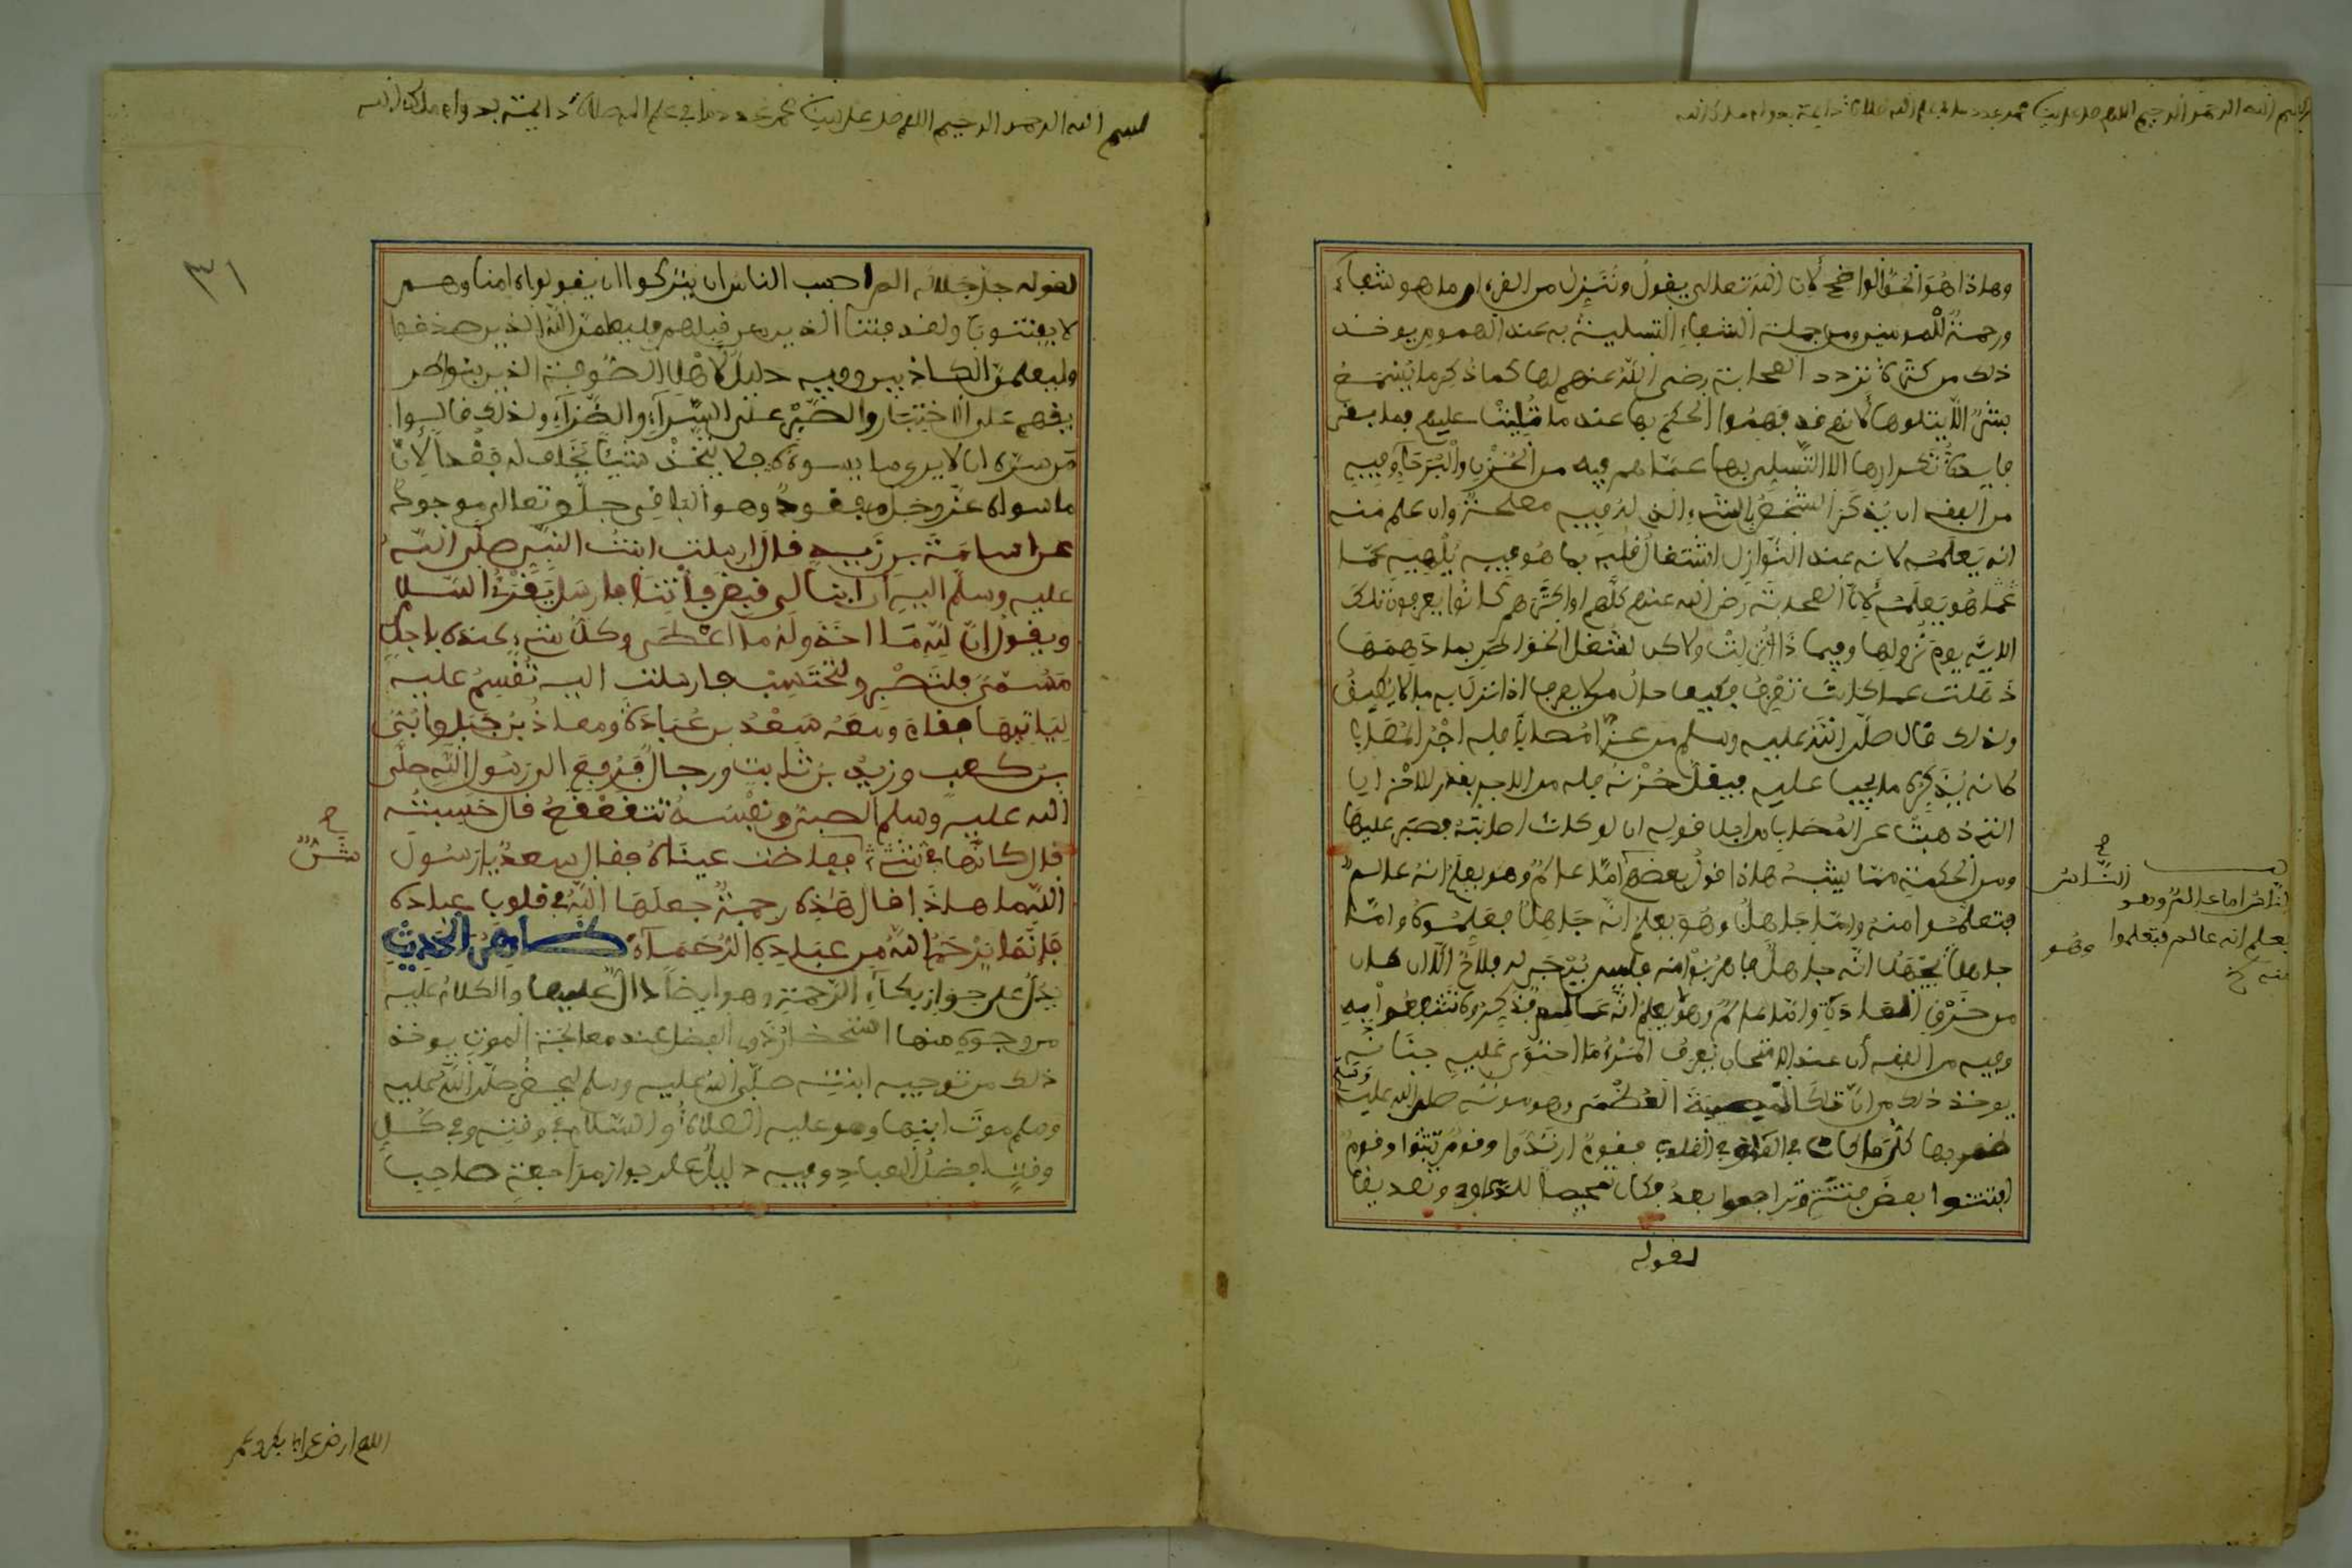 بسم الله الرحمن الرحيم اللهم صل على سيدنا محمد عدد ما في علم الله صلاة دايمة بدوام ملك الله
وهاذا هو الحق الواضح لان الله تعالى يقول وننزل من القرءان ما هو شفاء
ورحمة للمومنين ومن جملة الشفاء التسلية به عند الهموم يوخذ
ذلك من كثرة تردد الصحابة رضي الله عنهم لها كما ذكر ما يسمع
بشر الا يتلوها لانهم قد فهموا الحكم بها عند ما تليت عليهم فما بقى
فايدة تكرارها الا التسلي بها عما هم فيه من الحزن والبرحاء وفيه
من الفقه ان يذكر الشخص بالشيء الذي له فيه مصلحة وان علم منه
انه يعلمه لانه عند النوازل اشتغال قلبه بما هو فيه يلهيه عما
هو يعلمه لان الصحابة رضي الله عنهم كلهم او اكثرهم كانوا يعرفون تلك
الاية يوم نزولها وفيما ذا انزلت ولاكن لشغل الخواطر بما دهمها
ذهلت عما كانت تعرف فكيف حال من لا يعرف اذا نزل به ما لا يكيف
ولذلك قال صلى الله عليه وسلم من عزا مصابا فله اجر المصاب
كانه يذكره ما يجب عليه فيقل حزنه فله من الاجر بقدر للاحزان
التي ذهبت عن المصاب من اجل قوله ان لو كانت اصابته فصبر عليها
ومن الحكمة مما يشبه هاذا قول بعضهم اما عالم وهو يعلم انه عالم
فتعلموا منه واما جاهل وهو يعلم انه جاهل فعلموه واما
جاهل يجهل انه جاهل فاهربوا منه فليس يرجى له فلاح الا ان كان
من خرق العادة واما عالم وهو لا يعلم انه عالم فذكروه تنتفعوا به
وفيه من الفقه ان عند الامتحان يعرف المرء ما احتوى عليه جنانه
يوخذ ذلك من ان تلك المصيبة العظمى وهو موته صلى الله عليه وسلم
ظهر بها كل ما كان في القلوب فقوم ارتدوا وقوم ثبتوا وقوم
افتتنوا بعض فتنة وتراجعوا بعد فكان تمحيصا للدعاوي وتصديقا
لقوله
الناس اما عالم وهو
يعلم انه عالم فتعلموا
منه خ
الناس
وهو
بسم الله الرحمن الرحيم اللهم صل على سيدنا محمد عدد ما في علم الله صلاة دايمة بدوام ملك الله
٣١
لقوله جل جلاله الم احسب الناس ان يتركوا ان يقولوا ءامنا وهم
لا يفتنون ولقد فتنا الذين من قبلهم فليعلمن الله الذين صدقوا
وليعلمن الكاذبين وفيه دليل لاهل الصوفية الذين بنوا طريقهم
على الاختبار والصبر على السراء والضراء ولذلك قالوا
من سره ان لا يرى ما يسوءه فلا يتخذ شيئا يخاف له فقدا لان
ما سواه عز وجل مفقود وهو الباقي جل وتعالى موجود
عن اسامة بن زيد قال ارسلت ابنت النبي صلى الله
عليه وسلم اليه ان ابنا لي قبض فاتنا فارسل يقرئ السلام
ويقول ان لله ما اخذ وله ما اعطى وكل شيء عنده باجل
مسمى فلتصبر ولتحتسب فارسلت اليه تقسم عليه
لياتينها فقام ومعه سعد بن عبادة ومعاذ بن جبل وابي
بن كعب وزيد بن ثابت ورجال فرفع الى رسول الله صلى
الله عليه وسلم الصبي ونفسه تتقعقع قال حسبته
قال كانها شن ففاضت عيناه فقال سعد يا رسول
الله ما هاذا قال هذه رحمة جعلها الله في قلوب عباده
فانما يرحم الله من عباده الرحماء ظاهر الحديث
يدل على جواز بكاء الرحمة وهو ايضا دال عليها والكلام عليه
من وجوه منها استحضار ذوي الفضل عند معالجة الموت يوخذ
ذلك من توجيه ابنته صلى الله عليه وسلم ليحضر صلى الله عليه
وسلم موت ابنها وهو عليه الصلاة والسلام في وقته وفي كل
وقت افضل العباد وفيه دليل على جواز مراجعة صاحب
شن
اللهم ارض عن ابا بكر وعمر